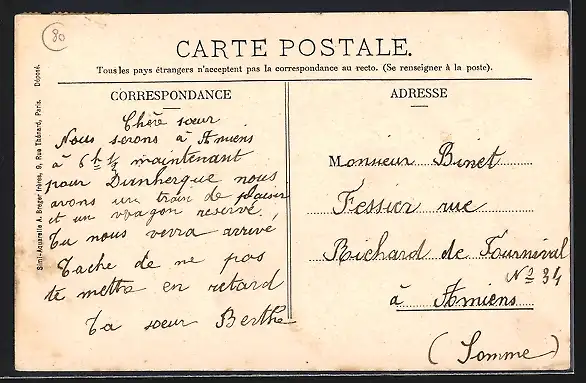 80
CARTE POSTALE.
Tous les pays étrangers n'acceptent pas la correspondance au recto. (Se renseigner à la poste).
CORRESPONDANCE
Chère sœur
Nous serons à Amiens
à 6h ½ maintenant
pour Dunkerque nous
avons un train de plaisir
et un wagon reservé.
Tu nous verra arrivé
Tache de ne pas
te mettre en retard
Ta sœur Berthe
ADRESSE
Monsieur Binet
Fessier rue
Richard de Fournival
No 34
à Amiens
(Somme)
Simi-Aquarelle A. Breger frères, 9, Rue Thénard, Paris. Déposé.